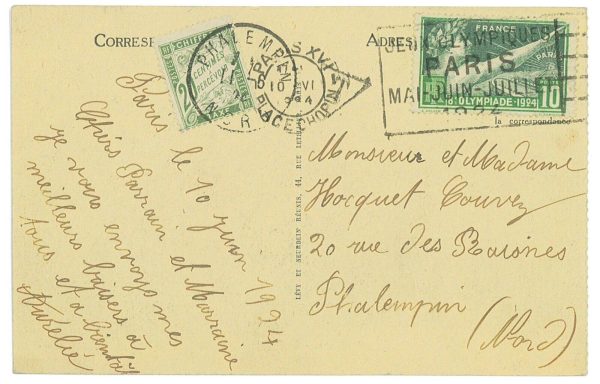 CORRES
ADRES
Paris le 10 juin 1924
Chers Parrain et Marraine
je vous envoye mes
meilleurs baisers à
tous et à bientôt
Aurélie
CHIFFRE
CENTIMES
À PERCEVOIR
TAXE
PHALEMPIN
NORD
PARIS XVI
PLACE CHOPIN
10 VI
24
JEUX OLYMPIQUES
PARIS
MAI-JUIN-JUILLET
1924
FRANCE
PARIS
8e OLYMPIADE-1924
10
la correspondance
LÉVY ET NEURDEIN RÉUNIS, 44, RUE LETELLIER, PARIS
Monsieur et Madame
Hocquet Couvez
20 rue des
Phalempin
(Nord)